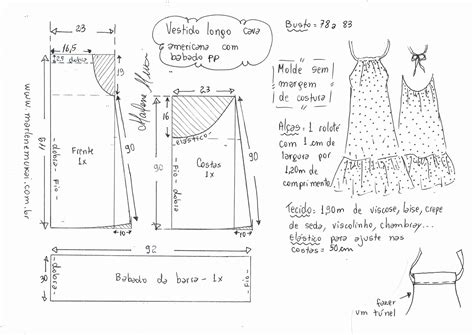 Vestido longo cava
americana com
babado PP
Busto = 78 a 83
Molde sem
margem
de costura
Alças = 1 rolotê
com 1 cm de
largura por
1,20m de
comprimento
Tecido = 1,90m de viscose, laise, crepe
de seda, viscolinho, chambray...
Elástico para ajuste nas
costas = 30cm
23
16,5
dobra
19
Frente
1x
90
10
dobra - fio -
www.marlenemukai.com.br
Marlene Mukai
23
16
elástico
Costas
1x
90
90
10
dobra - fio - dobra
92
30
dobra
Babado da barra - 1x
fazer
um túnel